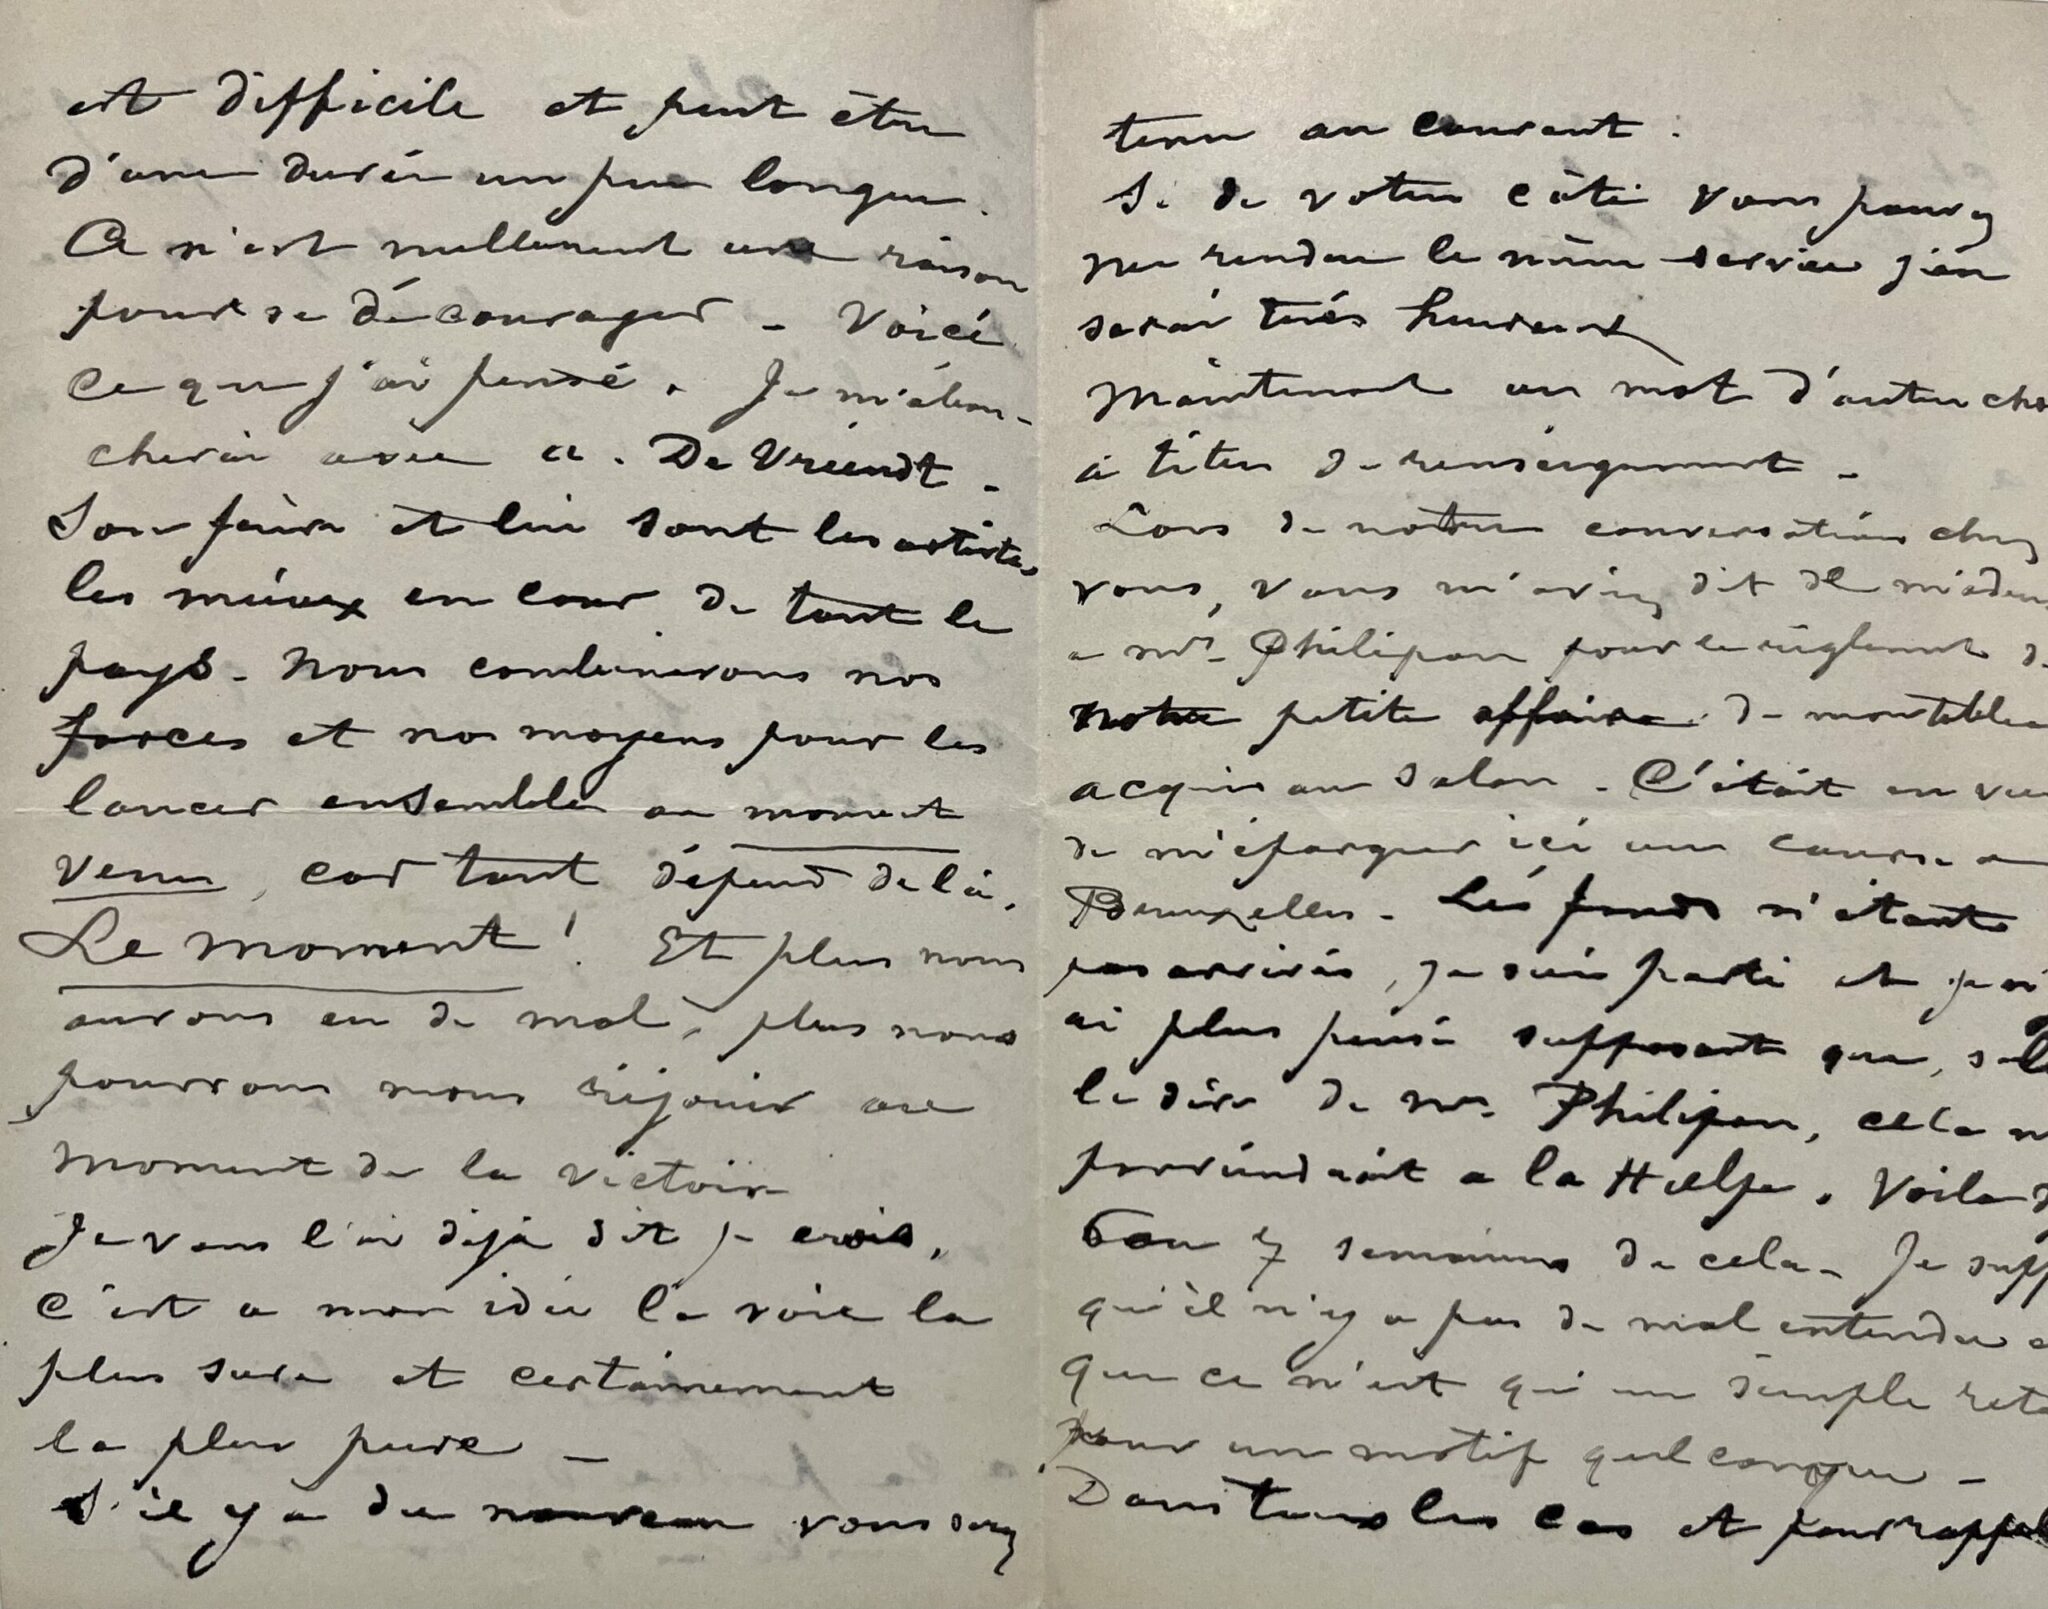 est difficile et peut être
d'une durée un peu longue.
Ce n'est nullement une raison
pour se décourager - Voici
ce que j'ai pensé. Je m'abou-
cherai avec A. De Vriendt -
Son frère et lui sont les artistes
les mieux en cour de tout le
pays - Nous combinerons nos
forces et nos moyens pour les
lancer ensemble au moment
venu, car tout dépend de là.
Le moment! Et plus nous
aurons eu de mal, plus nous
pourrons nous réjouir au
moment de la victoire
Je vous l'ai déjà dit je crois,
c'est a mon idée la voie la
plus sure et certainement
la plus pure -
S'il y a du nouveau vous serez
tenu au courant.
Si de votre côté vous pouvez
me rendre le même service j'en
serai très heureux
Maintenant un mot d'autre cho
à titre de renseignement -
Lors de notre conversation chez
vous, vous m'aviez dit de m'adress
a Mr. Philipon pour le règlement d
notre petite affaire de mon tableau
acquis au Salon. C'était en vue
de m'épargner ici une course a
Bruxelles - Les fonds n'étant
pas arrivés, je suis parti et je n'
ai plus pensé supposant que, sel
le dire de Mr. Philipon, cela m
parviendrait a la Hulpe. Voila
6 ou 7 semaines de cela - Je supp
qu'il n'y a pas de mal entendu e
que ce n'est qu'un simple reta
pour un motif quelconque -
Dans tous les cas et pour rappel